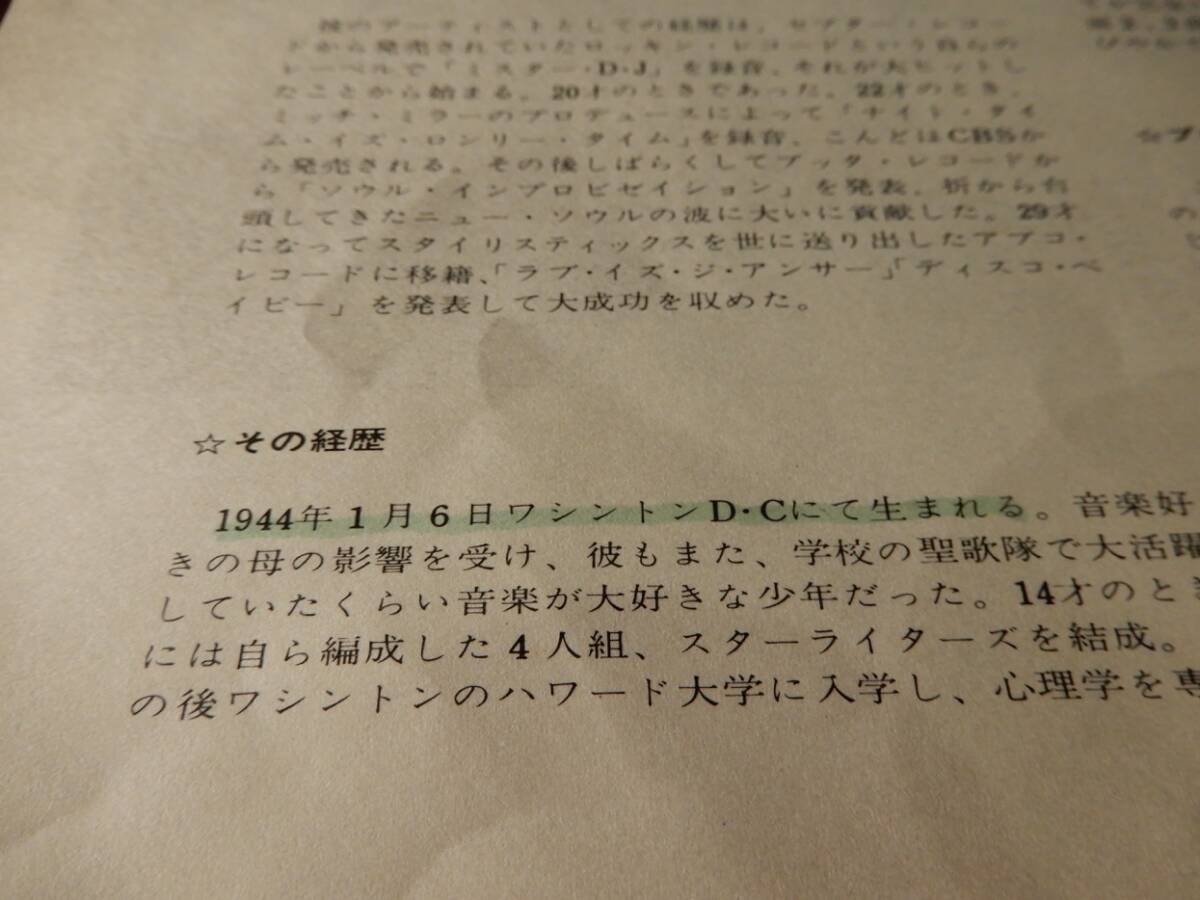 後のアーティストとしての経歴は、セプター・レコー
ドから発売されていたロッキン・レコードという自らの
レーベルで「ミスター・D・J」を録音、それが大ヒットし
たことから始まる。20才のときであった。22才のとき、
ミッチ・ミラーのプロデュースによって「ナイト・タイ
ム・イズ・ロンリー・タイム」を録音、こんどはCBSか
ら発売される。その後しばらくしてブッダ・レコードか
ら「ソウル・インプロビゼイション」を発表、折から台
頭してきたニュー・ソウルの波に大いに貢献した。29才
になってスタイリスティックスを世に送り出したアブコ・
レコードに移籍、「ラブ・イズ・ジ・アンサー」「ディスコ・ベ
イビー」を発表して大成功を収めた。
☆その経歴
1944年1月6日ワシントンD・Cにて生まれる。音楽好
きの母の影響を受け、彼もまた、学校の聖歌隊で大活躍
していたくらい音楽が大好きな少年だった。14才のとき
には自ら編成した4人組、スターライターズを結成。
の後ワシントンのハワード大学に入学し、心理学を専